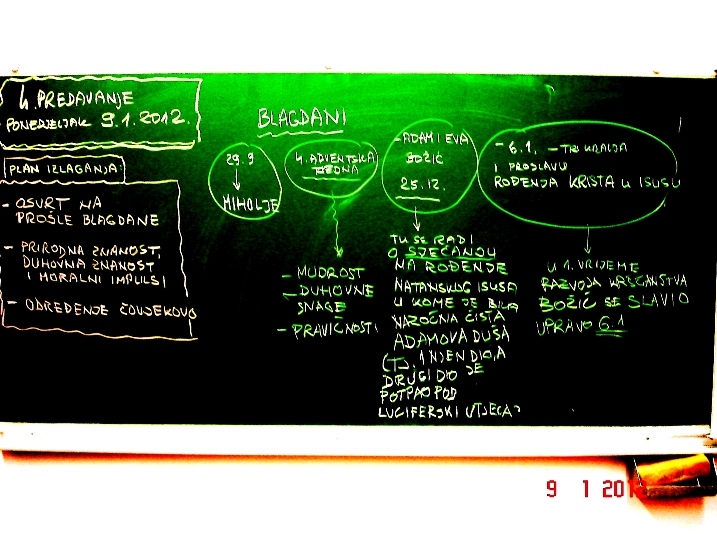 4. PREDAVANJE
PONEDJELJAK 9.1.2012.
PLAN IZLAGANJA:
- OSVRT NA
PROŠLE BLAGDANE
- PRIRODNA ZNANOST,
DUHOVNA ZNANOST
I MORALNI IMPULSI
- ODREĐENJE ČOVJEKOVO
BLAGDANI
29.9
MIHOLJE
4. ADVENTSKA
TJEDNA
- MUDROST
- DUHOVNE
SNAGE
- PRAVIČNOSTI
- ADAM I EVA
BOŽIĆ
25.12.
TU SE RADI
O SJEĆANJU
NA ROĐENJE
NATANSKOG ISUSA
U KOME JE BILA
NAZOČNA ČISTA
ADAMOVA DUŠA
(TJ. 1 NJEN DIO, A
DRUGI DIO JE
POTPAO POD
LUCIFERSKI UTJECAJ
- 6.1. - TRI KRALJA
I PROSLAVU
ROĐENJA KRISTA U ISUSU
U 1. VRIJEME
RAZVOJA KRŠĆANSTVA
BOŽIĆ SE SLAVIO
UPRAVO 6.1
9 1 201